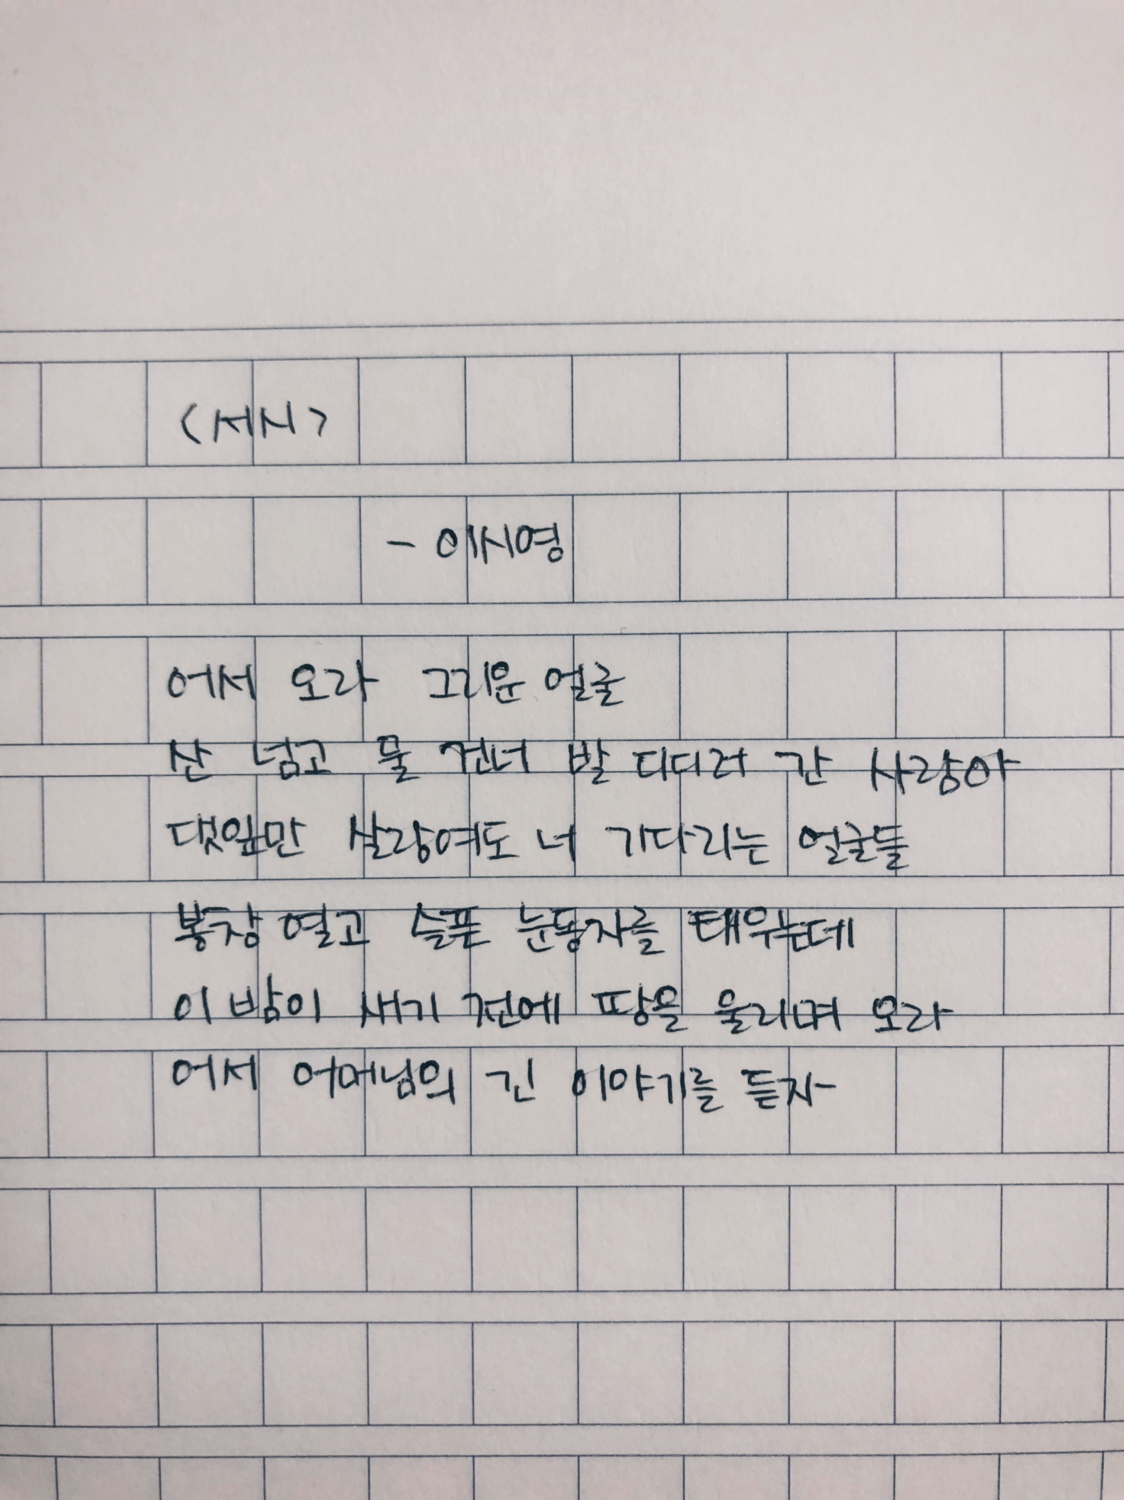 <서시>
- 이시영
어서 오라 그리운 얼굴
산 넘고 물 건너 발 디디러 간 사랑아
댓잎만 살랑여도 너 기다리는 얼굴들
봉창 열고 슬픈 눈동자를 태우는데
이 밤이 새기 전에 땅을 울리며 오라
어서 어머님의 긴 이야기를 듣자